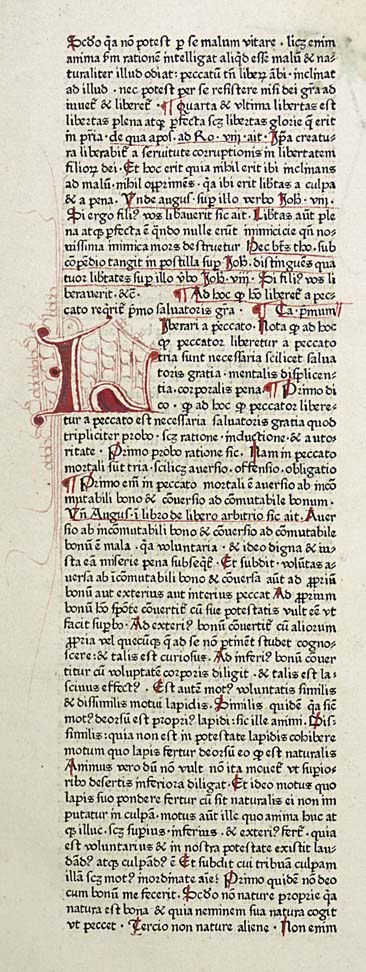 Scďo q̃a nõ potest ꝑ se malum vitare · licꝫ enim
anima ꝓm rationẽ intelligat aliqď esse malũ & na-
turaliter illud odiat: peccatũ tñ liberꝫ ãbi · inclinat
ad illud · nec potest per se resistere nisi dei grã ad
iuuet᷒ & liberet᷒ · ¶ Quarta & vltima libertas est
libertas plena atqꝫ ꝑfecta scꝫ libertas glorie q̃ erit
in pria · de qua apos · ad Ro · viij · ait · Ip̃a creatu-
ra liberabit᷒ a seruitute corruptionis in libertatem
filioꝝ dei · Et hoc erit quia nihil erit ibi inclinans
ad malũ · nihil opprimẽs · q̃a ibi erit lib̃tas a culpa
& a pena · Vnde augus · suꝑ illo verbo Joh̃ · viij ·
Si ergo fili᷒ vos libauerit sic ait · Lib̃tas aũt ple
na atqꝫ ꝑfecta ẽ q̃ndo nulle erũt inimicicie qñ no-
uissima inimica mors destruetur Hec bt̃s tho · sub
cõpẽdio tangit in postilla suꝑ Joh̃ · distinguẽs qua
tuor lib̃tates suꝑ illo v̾bo Joh̃ · viij · Si fili᷒ vos li
berauerit · &c̃ · ¶ Ad hoc ꝙ hõ liberet᷒ a pec-
cato reqrit᷒ pʾmo saluatoris gra · ¶ Ca · pʾmum
Liberari a peccato · Nota ꝙ ad hoc
ꝙ peccator liberetur a peccato
tria sunt necessaria scilicet salua
toris gratia · mentalis displicen-
tia · corporalis pena ¶ Primo di
co · ꝙ ad hoc ꝙ peccator libere-
tur a peccato est necessaria saluatoris gratia quod
tripliciter probo · scꝫ ratione · inductione · & auto-
ritate · Primo probo ratione sic · Nam in peccato
mortali sũt tria · scilicꝫ auersio · offensio · obligatio
¶ Primo eñĩ in peccato mortali ẽ auersio ab incõ
mutabili bono & cõuersio ad cõmutabile bonum ·
Vñ Augus · ĩ libro de libero arbitrio sic ait · Auer
sio ab incõmutabili bono & cõuersio ad cõmutabile
bonũ ẽ mala · q̃a voluntaria · & ideo digna & iu-
sta eã miserie pena subseq̃t᷒ · Et subdit · volũtas a-
uersa ab ĩcõmutabili bono & cõuersa aũt ad ꝓriũ
bonũ aut exterius aut interius peccat Ad ꝓrium
bonũ hõ spõte cõuertit᷒ cũ sue potestatis vult eẽ vt
facit suꝑbo · Ad exteri᷒ bonũ cõuertit᷒ cũ aliorum
ꝓria vel quecũqꝫ q̃ ad se nõ ptinẽt studet cogno-
scere: & talis est curiosus · Ad inferi᷒ bonũ cõuer
titur cũ voluptatẽ corporis diligit · & talis est la-
sciuus effect᷒ · Est autẽ mot᷒ voluntatis similis
& dissimilis motui lapidis · Similis quidẽ q̃a sic
mot᷒ deorsũ est propri᷒ lapidi: sic ille animi · Dis-
similis: quia non est in potestate lapidis cohibere
motum quo lapis fertur deorsũ eo ꝙ est naturalis
Animus vero dũ nõ vult nõ ita mouet᷒ vt supio-
rib᷒ desertis inferiora diligat · Et ideo motus quo
lapis suo pondere fertur cũ sit naturalis ei non im
putatur in culpã · motus aũt ille quo anima huc at
qꝫ illuc · scꝫ supius · inferius · & exteri᷒ fert᷒ · quia
est voluntarius & in nostra potestate existit lau-
dãd᷒ atqꝫ culpãd᷒ ẽ Et subdit cui tribuã culpam
illã scꝫ mot᷒ inordinate aĩe? Primo quidẽ nõ deo
cum bonũ me fecerit · Scďo nõ nature proprie q̃a
natura est bona & quia neminem sua natura cogit
vt peccet · Tercio non nature aliene · Non enim